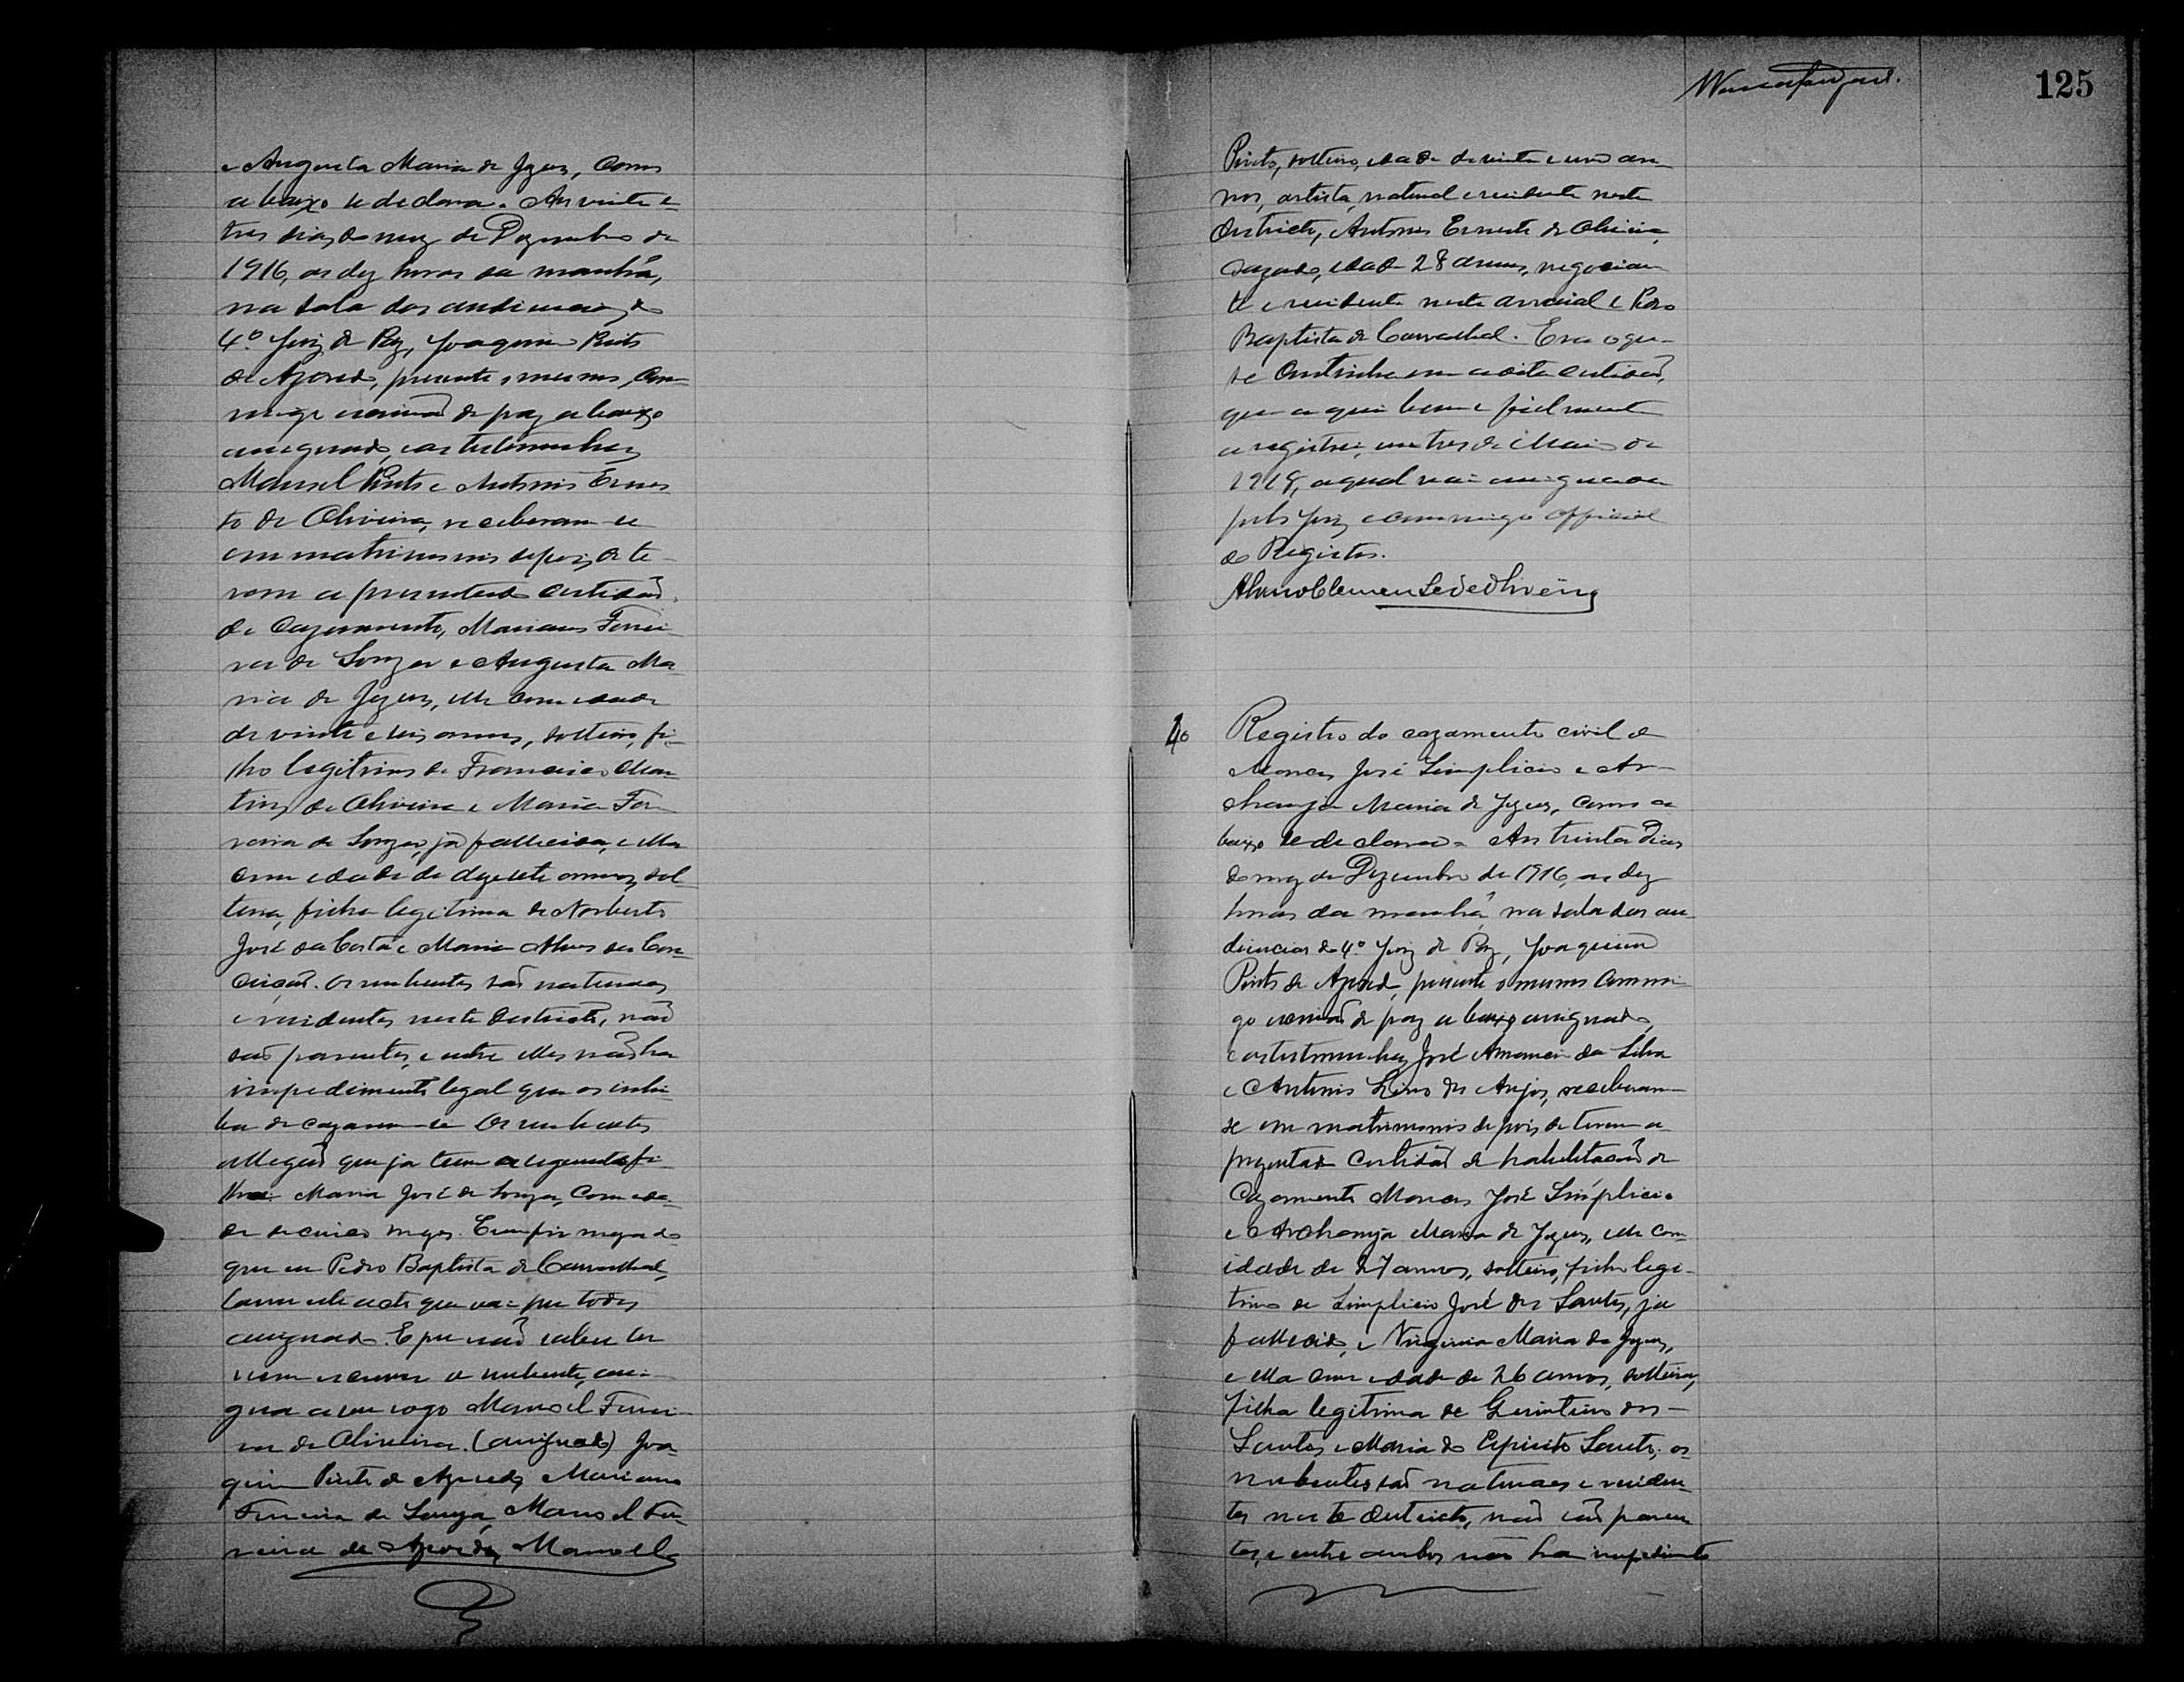 e Augusta Maria de Jezus, como
abaixo se declara. Aos vinte e
tres dias do mez de Dezembro de
1916, as dez horas da manhã,
na sala das audiencias do
4º Juiz de Paz, Joaquim Pinto
de Azevedo, presente o mesmo, com-
migo escrivão de paz abaixo
assignado, e as testemunhas
Manoel Pinto e Antonio Ernes
to de Oliveira, receberam-se
em matrimonio depois de te-
rem apresentado certidão
de Cazamento, Mariano Ferrei
ra de Souza e Augusta Ma
ria de Jezus, elle com edade
de vinte e seis annos, solteiro, fi-
lho legitimo de Francisco Mar
tins de Oliveira e Maria Fer
reira de Souza, já fallecida, e ella
com edade de dezesete annos, sol
teira, filha legitima de Norberto
José da Costa e Maria Alves da Con
ceição. Os nubentes são naturaes
e residentes neste districto, não
são parentes, e entre elles não ha
impedimento legal que os inhi
ba de cazarem-se. Os nubentes
allegão que ja tem a seguinte fi-
lha: Maria José de Souza, com eda-
de de cinco mezes. E em firmeza do
que eu Pedro Baptista de Carvalhal,
lavrei este acto que vai por todos
assignado. E por não saber ler
nem escrever a nubente, assi-
gna a seu rogo Manoel Ferrei-
ra de Oliveira. (assignado) Joa
quim Pinto de Azevedo, Mariano
Ferreira de Souza, Manoel Fer-
reira de Azevedo, Manoel
Pinto, solteiro, edade de vinte e um an
nos, artista, natural e residente neste
districto, Antonio Ernesto de Oliveira,
cazado, edade 28 annos, negocian
te e residente neste arraial e Pedro
Baptista de Carvalhal. Era o que
se continha em a dita certidão,
que aqui bem e fielmente
a registrei, em tres de Maio de
1918, a qual vai assignada
pelo Juiz e commigo official
do Registro.
125
40
Registro do cazamento civil de
Moncas José Simplicio e Ar-
changa Maria de Jezus, como a
baixo se declara. Aos trinta dias
do mez de Dezembro de 1916, as dez
horas da manhã na sala das au
diencias do 4º Juiz de Paz, Joaquim
Pinto de Azevedo, presente o mesmo commi
go escrivão de paz abaixo assignado,
e as testemunhas José Amancio da Silva
e Antonio Lino dos Anjos, receberam-
se em matrimonio depois de terem a
prezentado certidão de habilitação de
Cazamento Moncas José Simplicio
e Archanga Maria de Jezus, elle com
idade de 27 annos, solteiro, filho legi-
timo de Simplicio José dos Santos, ja
fallecido, e Virginia Maria de Jezus,
e ella com edade de 26 annos, solteira,
filha legitima de dos
Santos e Maria do Espirito Santo; os
nubentes são naturaes e residen
tes neste districto, não são paren
tes, e entre ambos não ha impedimento